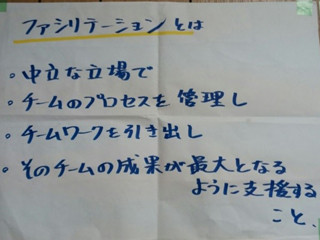 ファシリテーションとは
。中立な立場で
。チームのプロセスを管理し
。チームワークを引き出し
。そのチームの成果が最大となる
ように支援する
こと、